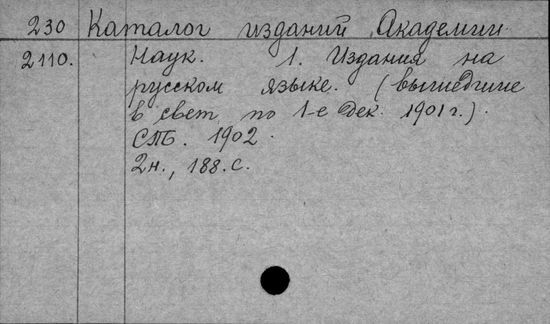 230 Каталог изданий Академии
2110. Наук. 1. Издания на
русском языке. (вышедшие
в свет по 1-е Дек. 1901 г.)
СПБ. 1902.
2н., 188. с.